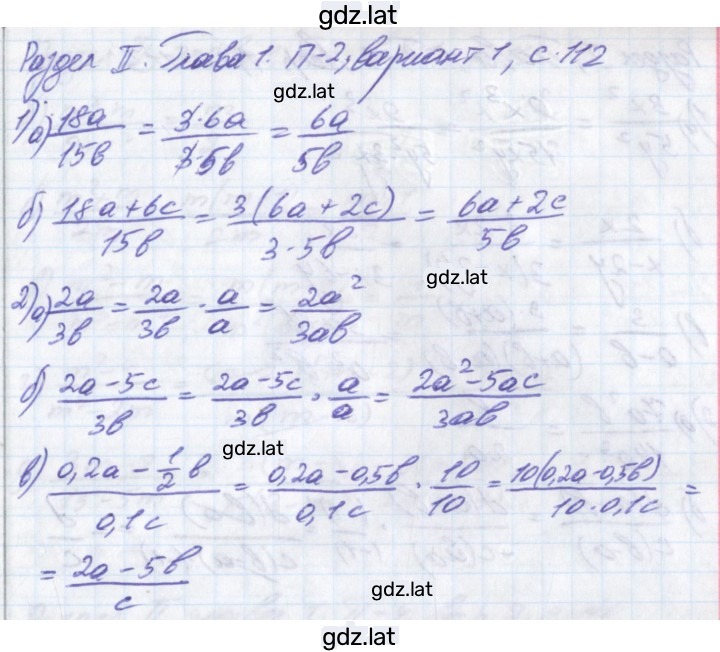 gdz.lat
Раздел II. Глава 1. П-2, вариант 1, с. 112
gdz.lat
1) а) 18a/15b = 3·6a/3·5b = 6a/5b
б) 18a+6c/15b = 3(6a+2c)/3·5b = 6a+2c/5b
gdz.lat
2) а) 2a/3b = 2a/3b · a/a = 2a²/3ab
б) 2a-5c/3b = 2a-5c/3b · a/a = 2a²-5ac/3ab
gdz.lat
в) 0,2a - 1/2 b/0,1c = 0,2a-0,5b/0,1c · 10/10 = 10(0,2a-0,5b)/10·0,1c =
= 2a-5b/c
gdz.lat
gdz.lat